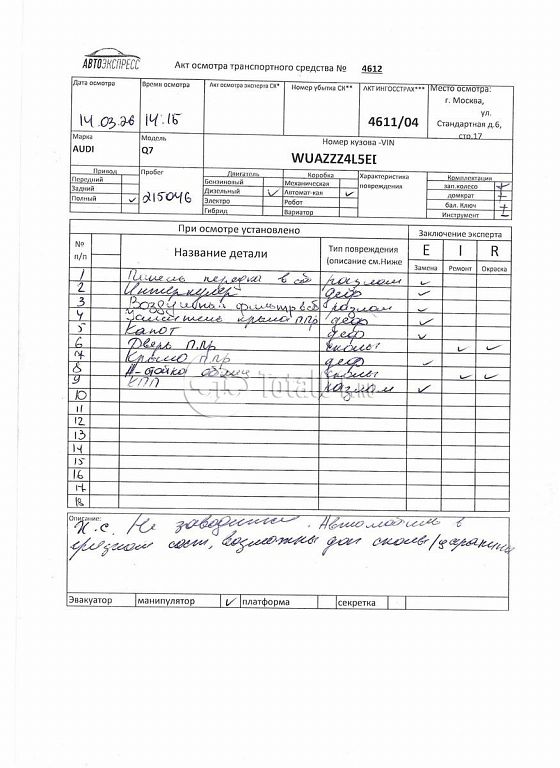 АВТОЭКСПРЕСС
Акт осмотра транспортного средства № 4612
Дата осмотра Время осмотра Акт осмотра эксперта СК* Номер убытка СК** АКТ ИНГОССТРАХ*** Место осмотра:
г. Москва,
ул.
Стандартная д.6,
стр.17
14.03.26 14:15 4611/04
Марка Модель Номер кузова -VIN
AUDI Q7 WUAZZZ4L5EI
Привод Пробег Двигатель Коробка Характеристика повреждения Комплектация
Передний Бензиновый Механическая зап.колесо +
Задний Дизельный ✓ Автомат-кая ✓ домкрат -
Полный ✓ 215046 Электро Робот бал. Ключ +
Гибрид Вариатор Инструмент ±
При осмотре установлено Заключение эксперта
№ п/п Название детали Тип повреждения (описание см.Ниже E I R
Замена Ремонт Окраска
1 Панель передка в сб разлом ✓
2 Интеркулер деф ✓
3 Воздушный фильтр в сб разлом ✓
4 крыла п.пр деф ✓
5 Капот деф ✓
6 Дверь п.пр сколы ✓ ✓
7 Крыло п.пр деф ✓
8 А-стойка сколы ✓ ✓
9 КПП разлом ✓
10
11
12
13
14
15
16
17
18
Описание:
Н.с. Не заводится. Автомобиль в
грязном сост, возможны доп сколы/царапины
Эвакуатор манипулятор ✓ платформа секретка